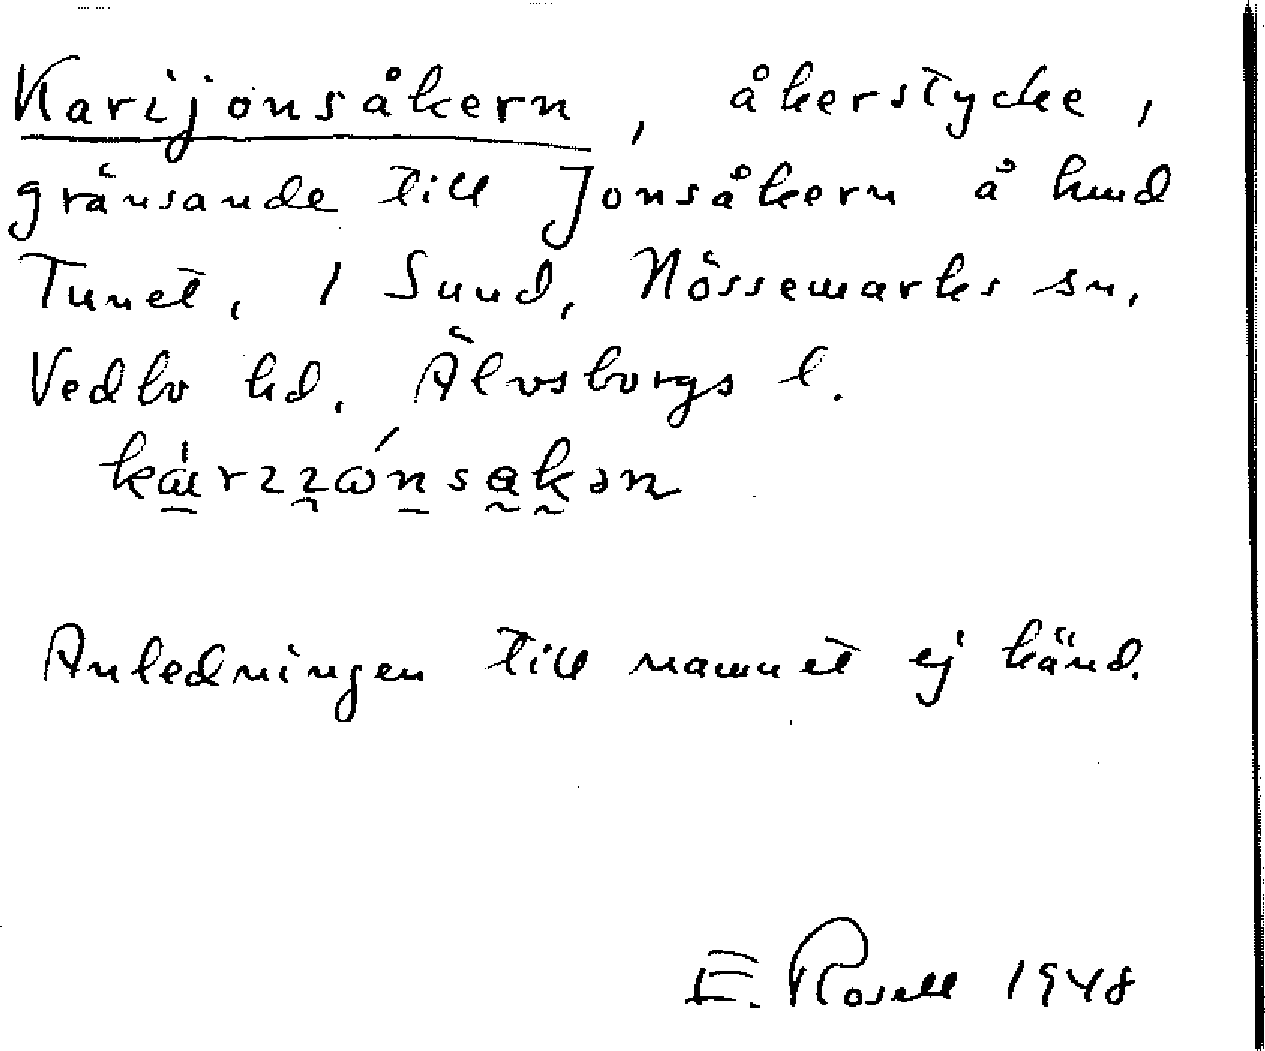 Karijonsåkern, åkerstycke,
gränsande till Jonsåkern å hmd
Tunet, 1 Sund, Nössemarks sn,
Vedbo hd. Älvsborgs l.
Anledningen till namnet ej känd.
E. Rosell 1948